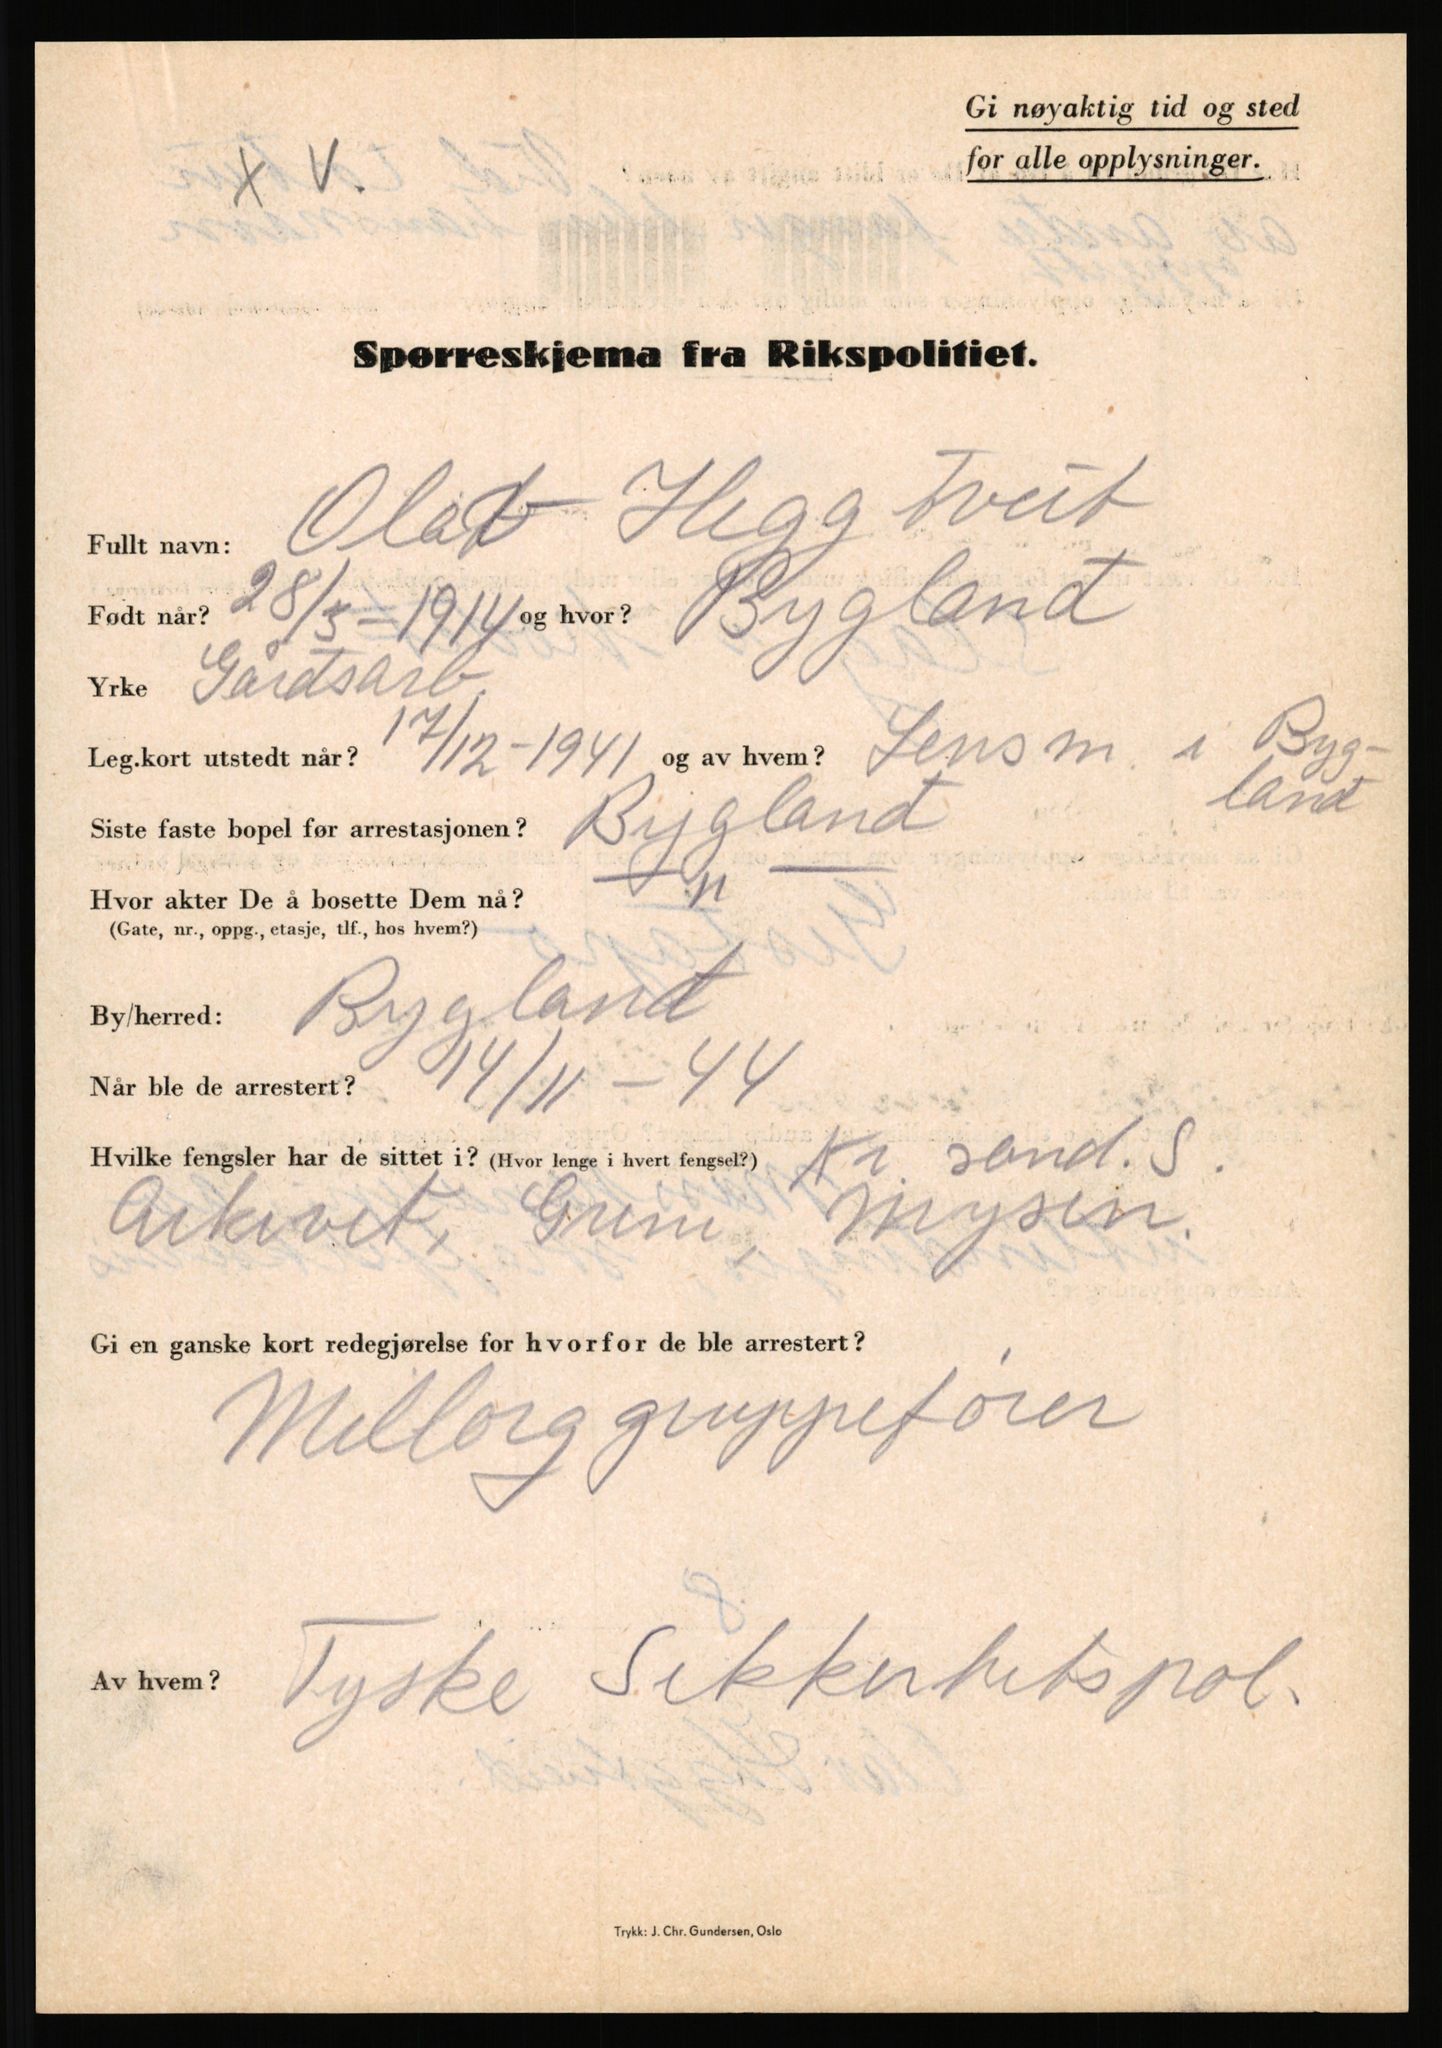 Gi nøyaktig tid og sted
for alle opplysninger.
X V.
Spørreskjema fra Rikspolitiet.
Fullt navn: Olav Heggtveit
Født når? 28/5-1914 og hvor? Bygland
Yrke Gårdsarb.
Leg.kort utstedt når? 17/12-1941 og av hvem? Lensm. i Byg-
land
Siste faste bopel før arrestasjonen? Bygland
Hvor akter De å bosette Dem nå? — " —
(Gate, nr., oppg., etasje, tlf., hos hvem?)
By/herred: Bygland
Når ble de arrestert? 14/11-44
Hvilke fengsler har de sittet i? (Hvor lenge i hvert fengsel?) Kr. sand. S.
Arkivet, Grini, Mysen.
Gi en ganske kort redegjørelse for hvorfor de ble arrestert?
Millorg gruppefører
Av hvem? Tyske Sikkerhetspol.
Trykk: J. Chr. Gundersen, Oslo